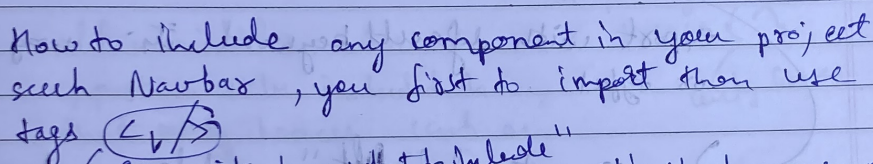 How to include any component in your project
such Navbar , you first to import then use
tags < />